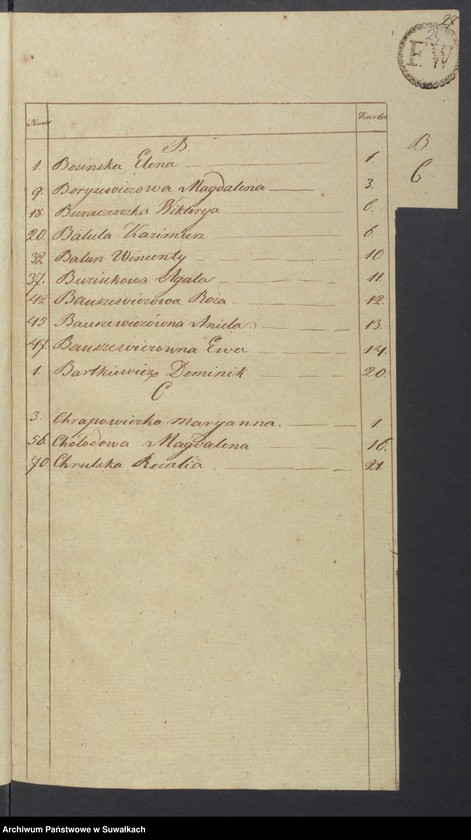 27
2
EW
Numer
Karta
B
C
B
1. Bosinska Elena 1.
9. Boryzewiczowa Magdalena 3.
18. Buraczewska Wiktorya 6.
20. Baluta Kazimierz 6.
32. Balun Wincenty 10.
37. Buziukowa Agata 11.
42. Bauszewiczowa Roza 12.
45. Bauszewiczówna Aniela 13.
47. Bauszewiczowna Ewa 14.
1. Bartkiewicz Dominik 20.
C
3. Chrapowicka Maryanna. 1
56. Chołodowa Magdalena 16.
70. Chrulska Rozalia 21.
Archiwum Państwowe w Suwałkach